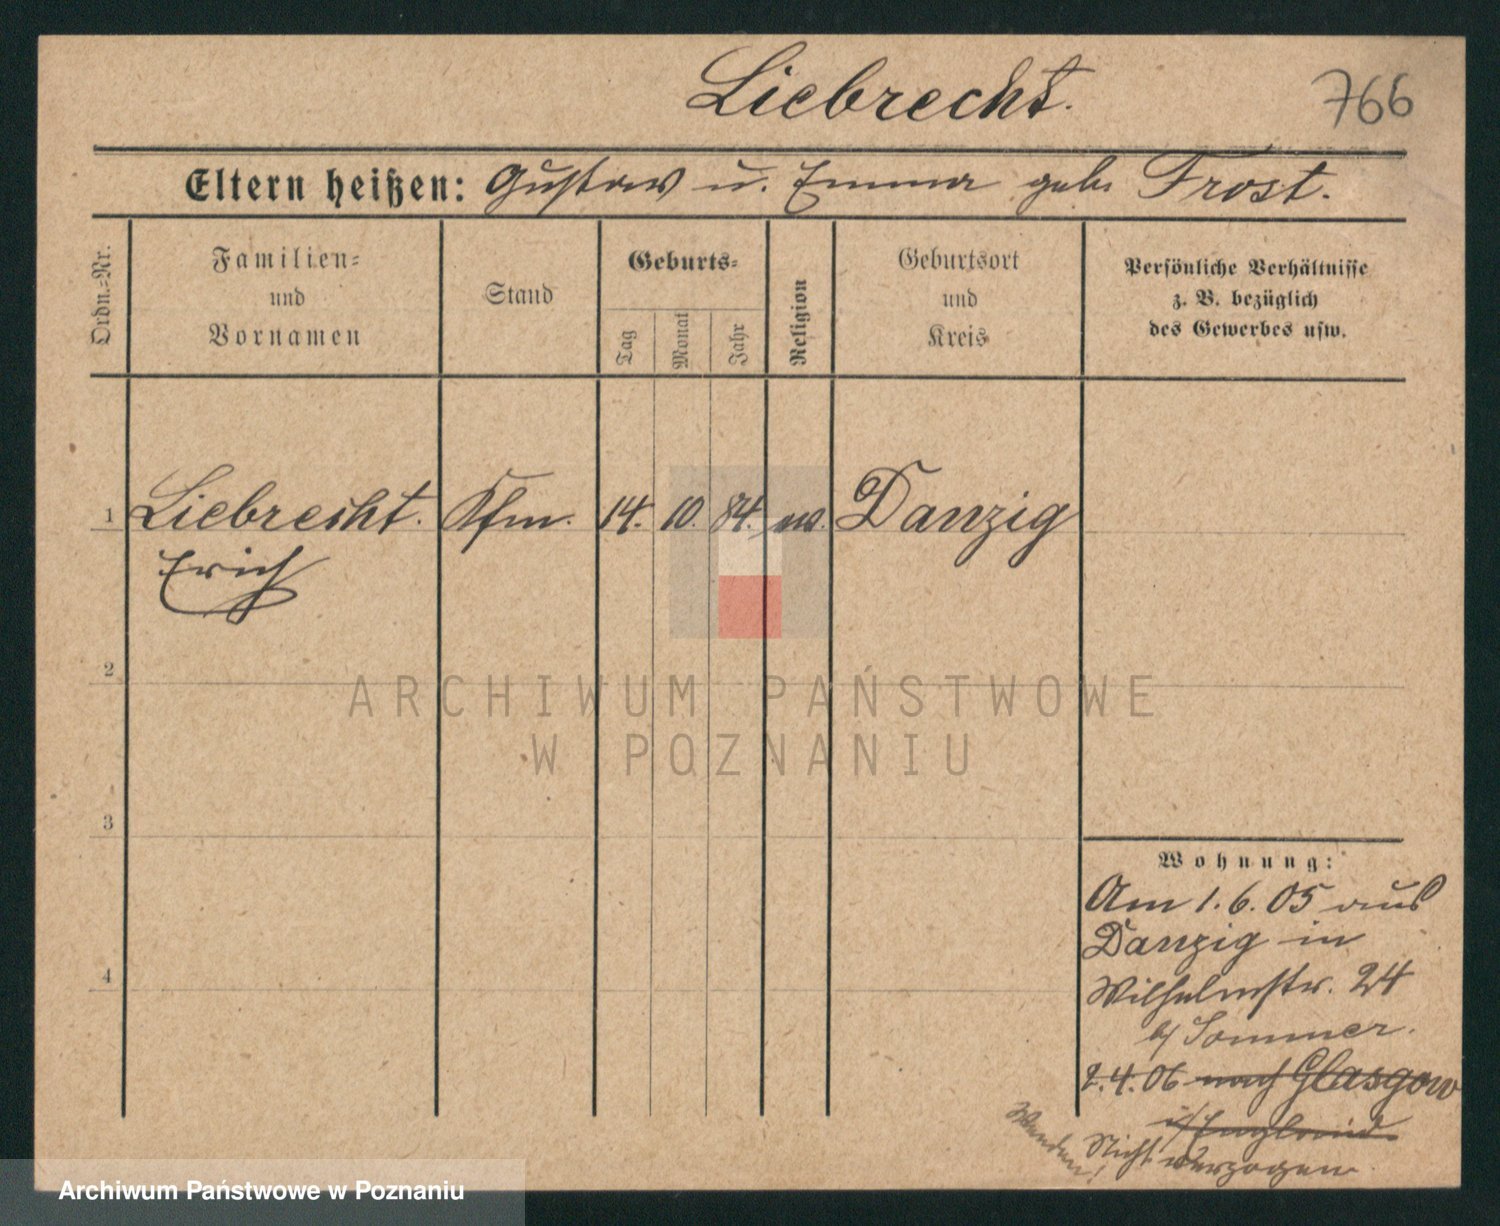 Liebrecht.
766
Eltern heißen: Gustav u. Emma geb. Frost.
Ordn.-Nr.
Familien- und Vornamen
Stand
Geburts-
Tag
Monat
Jahr
Religion
Geburtsort und Kreis
Persönliche Verhältnisse
z. B. bezüglich
des Gewerbes usw.
1 Liebrecht. Kfm. 14. 10. 84. ev. Danzig
Erich
2
3
4
Wohnung:
Am 1.6.05 aus
Danzig in
Wilhelmstr. 24
b/ Sommer.
2.4.06 nach Glasgow
i/ England.
Nicht verzogen
Wenden!
ARCHIWUM PAŃSTWOWE
W POZNANIU
Archiwum Państwowe w Poznaniu